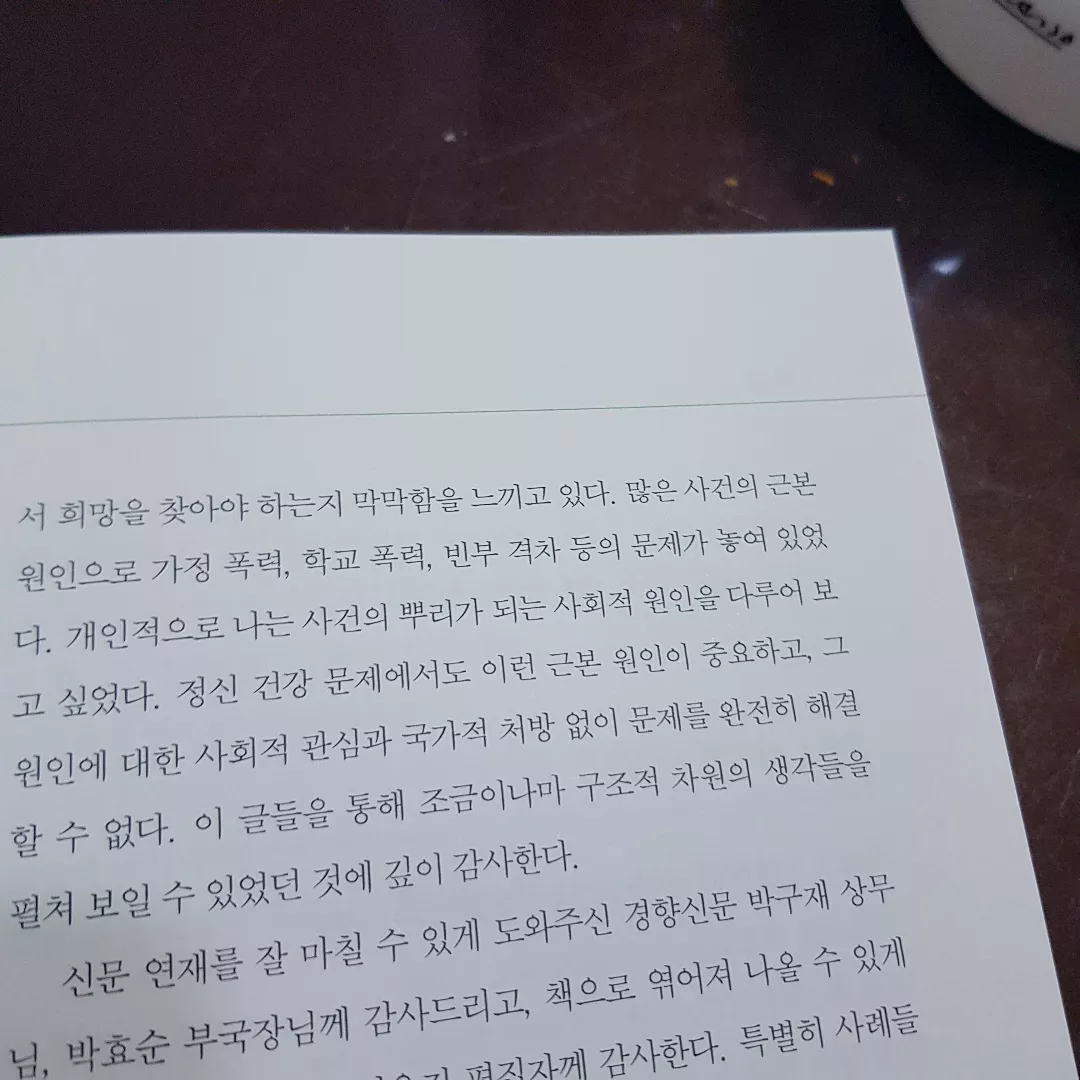 서 희망을 찾아야 하는지 막막함을 느끼고 있다. 많은 사건의 근본
원인으로 가정 폭력, 학교 폭력, 빈부 격차 등의 문제가 놓여 있었
다. 개인적으로 나는 사건의 뿌리가 되는 사회적 원인을 다루어 보
고 싶었다. 정신 건강 문제에서도 이런 근본 원인이 중요하고, 그
원인에 대한 사회적 관심과 국가적 처방 없이 문제를 완전히 해결
할 수 없다. 이 글들을 통해 조금이나마 구조적 차원의 생각들을
펼쳐 보일 수 있었던 것에 깊이 감사한다.
신문 연재를 잘 마칠 수 있게 도와주신 경향신문 박구재 상무
님, 박효순 부국장님께 감사드리고, 책으로 엮어져 나올 수 있게
편집자께 감사한다. 특별히 사례들